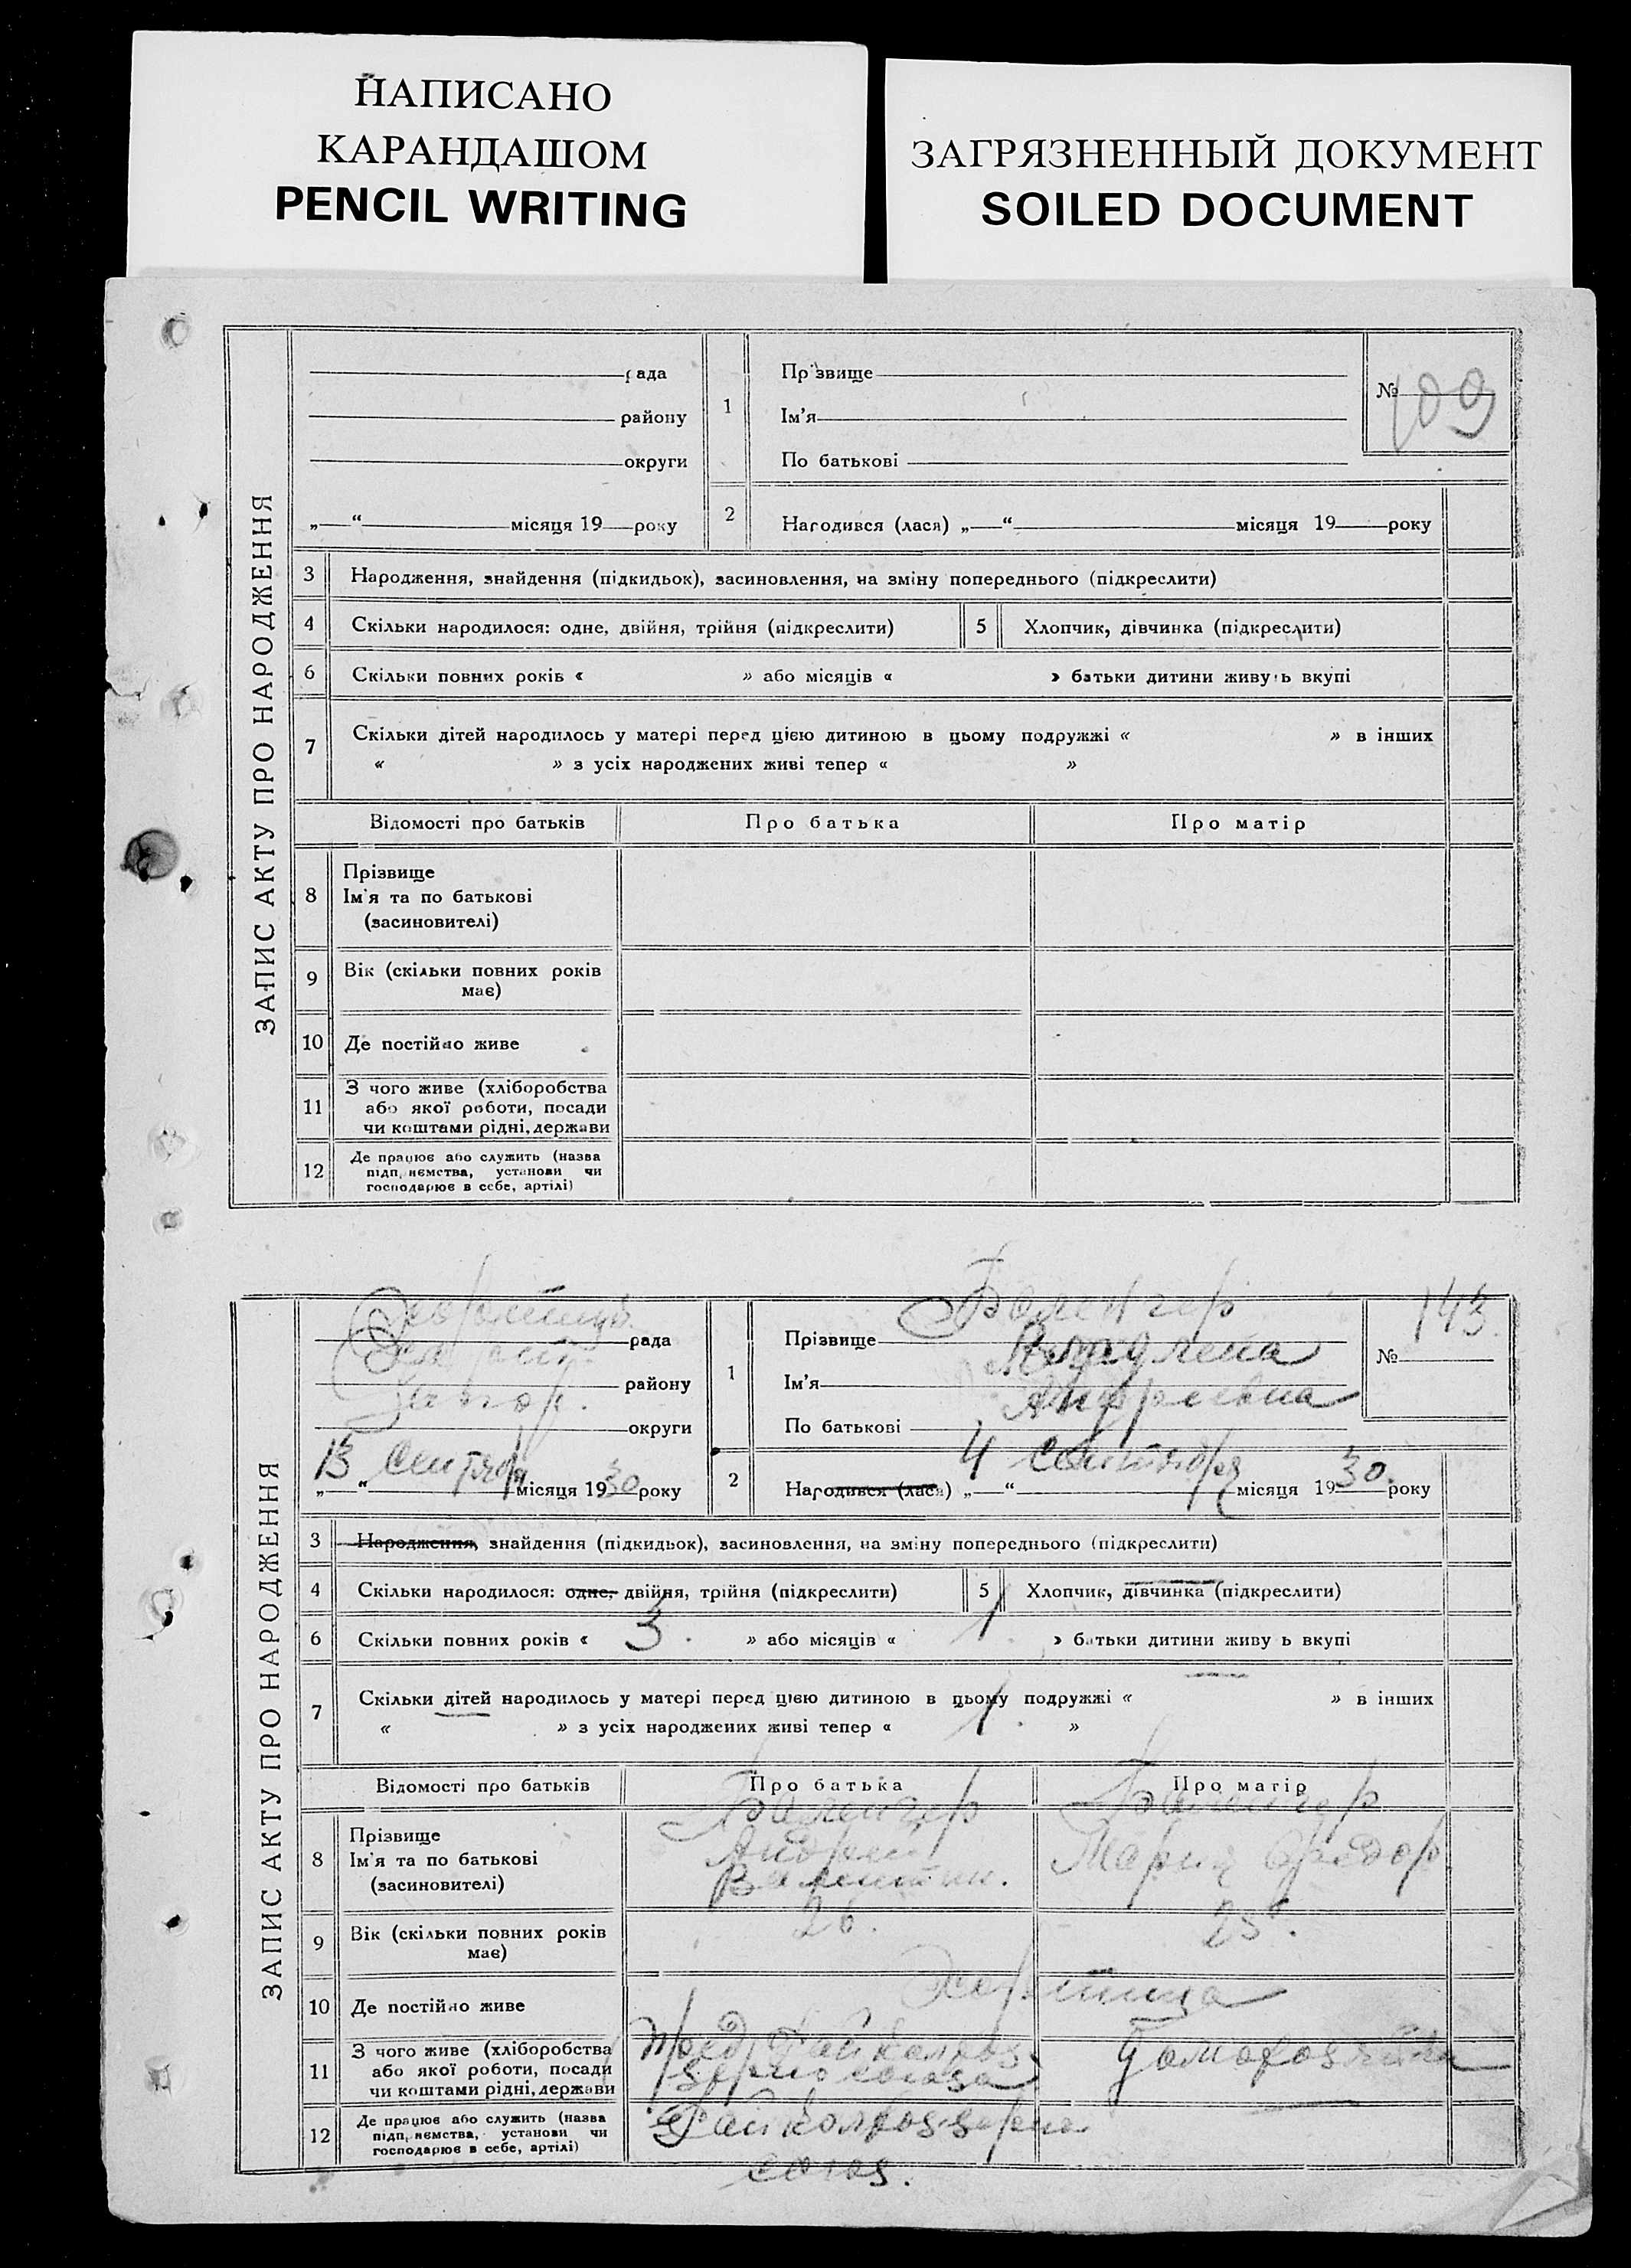 НАПИСАНО
КАРАНДАШОМ
PENCIL WRITING
ЗАГРЯЗНЕННЫЙ ДОКУМЕНТ
SOILED DOCUMENT
ЗАПИС АКТУ ПРО НАРОДЖЕННЯ
рада
району
округи
„—“ місяця 19 року
1
Прізвище
Ім'я
По батькові
№ 109
2
Народився (лася) „—“ місяця 19 року
3 Народження, знайдення (підкидьок), засиновлення, на зміну попереднього (підкреслити)
4 Скільки народилося: одне, двійня, трійня (підкреслити) 5 Хлопчик, дівчинка (підкреслити)
6 Скільки повних років « » або місяців « » батьки дитини живуть вкупі
7 Скільки дітей народилось у матері перед цією дитиною в цьому подружжі « » в інших
« » з усіх народжених живі тепер « »
Відомості про батьків Про батька Про матір
8 Прізвище
Ім'я та по батькові
(засиновителі)
9 Вік (скільки повних років
має)
10 Де постійно живе
11 З чого живе (хліборобства
або якої роботи, посади
чи коштами рідні, держави
12 Де працює або служить (назва
підприємства, установи чи
господарює в себе, артілі)
ЗАПИС АКТУ ПРО НАРОДЖЕННЯ
рада
району
Запор. округи
13 Сентября місяця 1930 року
1
Прізвище Валенгер
Ім'я Магдлена
По батькові Андреевна
№ 143
2
Народився (лася) „4“ Сентября місяця 1930. року
3 Народження, знайдення (підкидьок), засиновлення, на зміну попереднього (підкреслити)
4 Скільки народилося: одне, двійня, трійня (підкреслити) 5 Хлопчик, дівчинка (підкреслити)
6 Скільки повних років « 3. » або місяців « 1. » батьки дитини живу ь вкупі
7 Скільки дітей народилось у матері перед цією дитиною в цьому подружжі « — » в інших
« — » з усіх народжених живі тепер « 1. »
Відомості про батьків Про батька Про матір
8 Прізвище
Ім'я та по батькові
(засиновителі)
Валенгер
Андрей
Валентин.
Валенгер
Мария Федор
9 Вік (скільки повних років
має)
26. 25.
10 Де постійно живе Хортица
11 З чого живе (хліборобства
або якої роботи, посади
чи коштами рідні, держави
Пред. Райколхоз
зерносоюза
Домохозяйка
12 Де працює або служить (назва
підприємства, установи чи
господарює в себе, артілі)
Райколхоззерно
союз. —